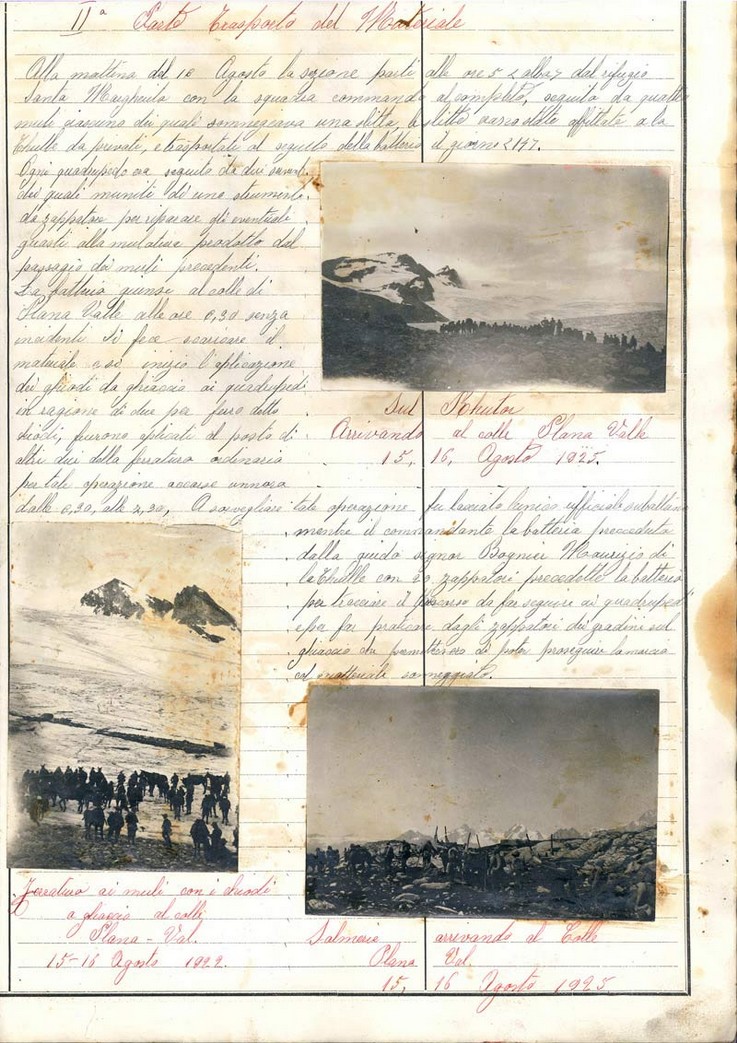 IIª Parte Trasporto del Materiale
Alla mattina del 16 Agosto la sezione partì alle ore 5 <alba> dal rifugio
Santa Margherita con la squadra commando al completo, seguita da quattro
muli ciascuno dei quali someggiava una slitta, le slitte erano state affittate a la
Thuile da privati, e trasportate al seguito della batteria il giorno
Ogni quadrupedo era seguito da due
dei quali muniti di uno strumento
da zappatore per riparare gli eventuali
guasti alla mulatiera prodotto dal
passagio dei muli precedenti.
La batteria giunse al colle di
Plana Valle alle ore 6,30 senza
incidenti si fece scaricare il
materiale e si inizio l'aplicazione
dei ghiodi da ghiaccio ai quadrupedi
in ragione di due per ferro detto
chiodi, furono aplicati al posto di
altri due della ferratura ordinaria
per tale operazione accorse unnora
dalle 6,30, alle 7,30, A sorvegliare tale operazione fu lasciato l'unico ufficiale subalterno
mentre il commandante la batteria preceduta
dalla guida signor Bognier Maurizio di
la Thuille con 20 zappatori precedette la batteria
per tracciare il percorso da far seguire ai quadrupedi
e per far praticare dagli zappatori dei gradini sul
ghiaccio da permettere di poter proseguire la marcia
col materiale someggiato.
Sul Rhutor
Arrivando al colle Plana Valle
15, 16, Agosto 1925.
Ferratura ai muli con i chiodi
a ghiaccio al colle
Plana-Val.
15-16 Agosto 1922.
Salmerie arrivando al Colle
Plana Val
15, 16 Agosto 1925